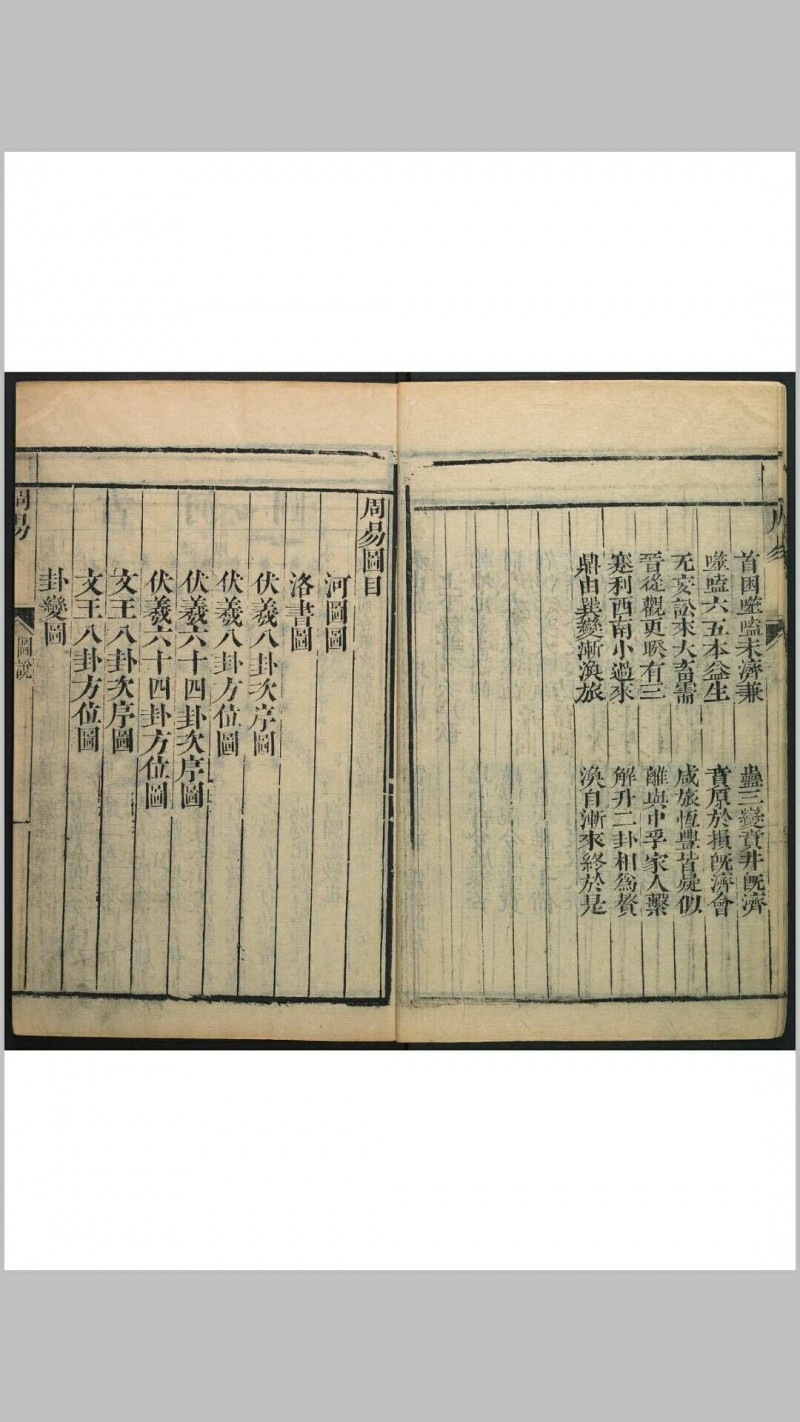 周易
首困噬嗑未濟兼　蠱三變賁井旣濟
噬嗑六五本益生　賁原於損旣濟會
无妄訟來大畜需　咸旅恆豐皆疑似
晉從觀更睽有三　離與中孚家人繫
蹇利西南小過來　解升二卦相爲贅
鼎由巽變漸渙旅　渙自漸來終於是
周易圖目
河圖圖
洛書圖
伏羲八卦次序圖
伏羲八卦方位圖
伏羲六十四卦次序圖
伏羲六十四卦方位圖
文王八卦次序圖
文王八卦方位圖
卦變圖
周易　圖說